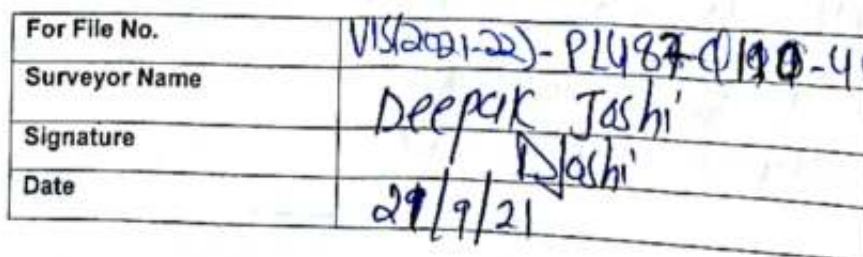 For File No. VIS(2021-22)-PL487-
Surveyor Name Deepak Joshi
Signature DJoshi
Date 29/9/21